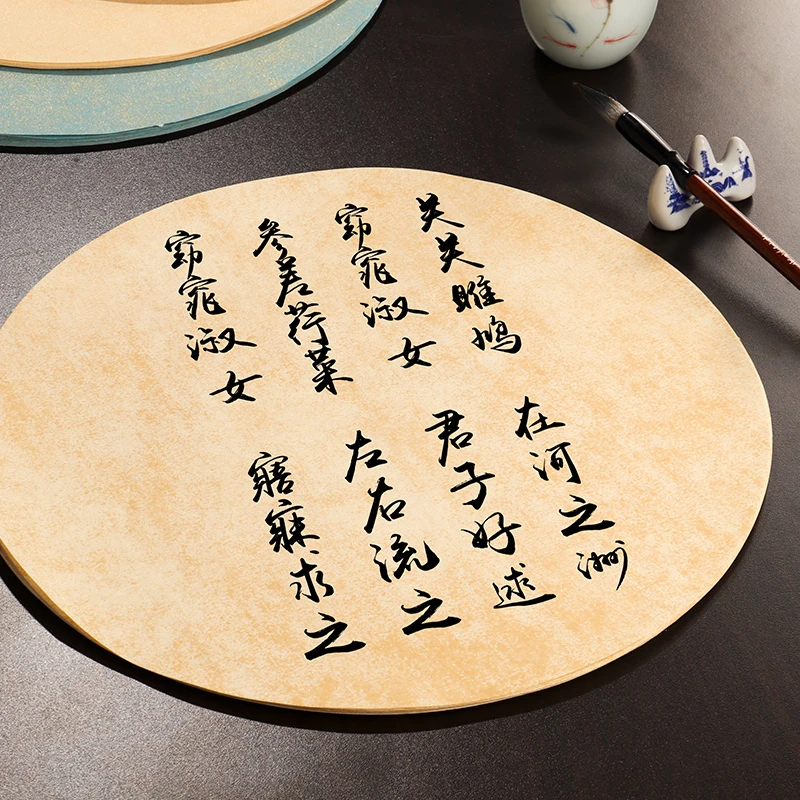 关关雎鸠
在河之洲
窈窕淑女
君子好逑
参差荇菜
左右流之
窈窕淑女
寤寐求之